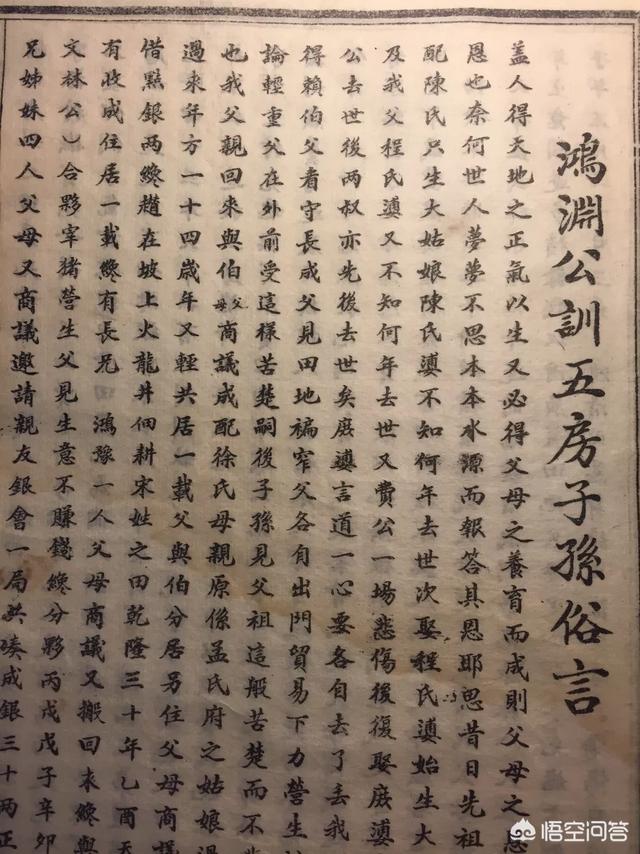 鴻淵公訓五房子孫俗言
盖人得天地之正氣以生又必得父母之養育而成則父母之恩
恩也奈何世人夢夢不思本本水源而報答其恩耶思昔日先祖
配陳氏只生大姑娘陳氏婆不知何年去世次娶程氏婆始生大
及我父程氏婆又不知何年去世又費公一場悲傷後復娶庶婆
公去世後兩叔亦先後去世矣庶婆言道一心要各自去了丟我
得賴伯父者守長成父見田地褊窄父各自出門貿易下力營生
論輕重父在外前受這樣苦楚嗣後子孫見父祖這般苦楚而不
也我父親回來與伯父母商議成配徐氏母親原係孟氏府之姑娘過
過來年方一十四歲年又輕共居一載父與伯分居另住父母商議
借點銀兩纔趙在坡上火龍井佃耕宋姓之田乾隆三十年乙酉天
有收成住居一載纔有長兄 鴻豫一人父母商議又搬回来纔與
文林公）合夥宰猪營生父見生意不賺錢纔分夥丙戌戊子辛卯
兄姊妹四人父母又商議邀請親友銀會一局共湊成銀三十兩正
悟空问答